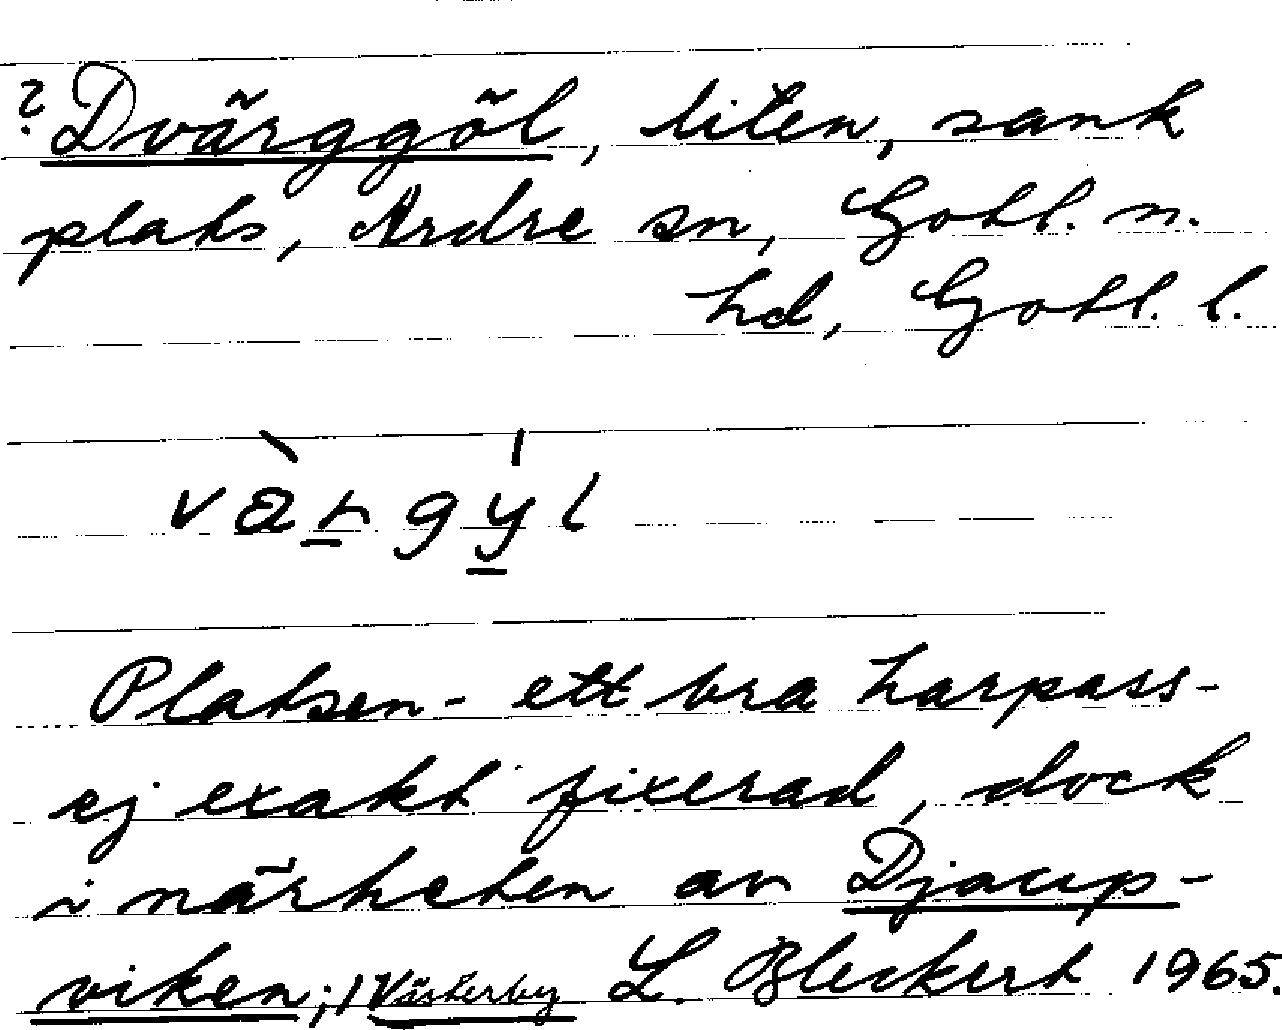 ? Dvärggöl, liten, sank
plats, Ardre sn, Gotl. n.
hd, Gotl. l.
vàrgýl
Platsen - ett bra harpass -
ej exakt fixerad, dock
i närheten av Djaup-
viken; i Västerby L. Bleckert 1965.